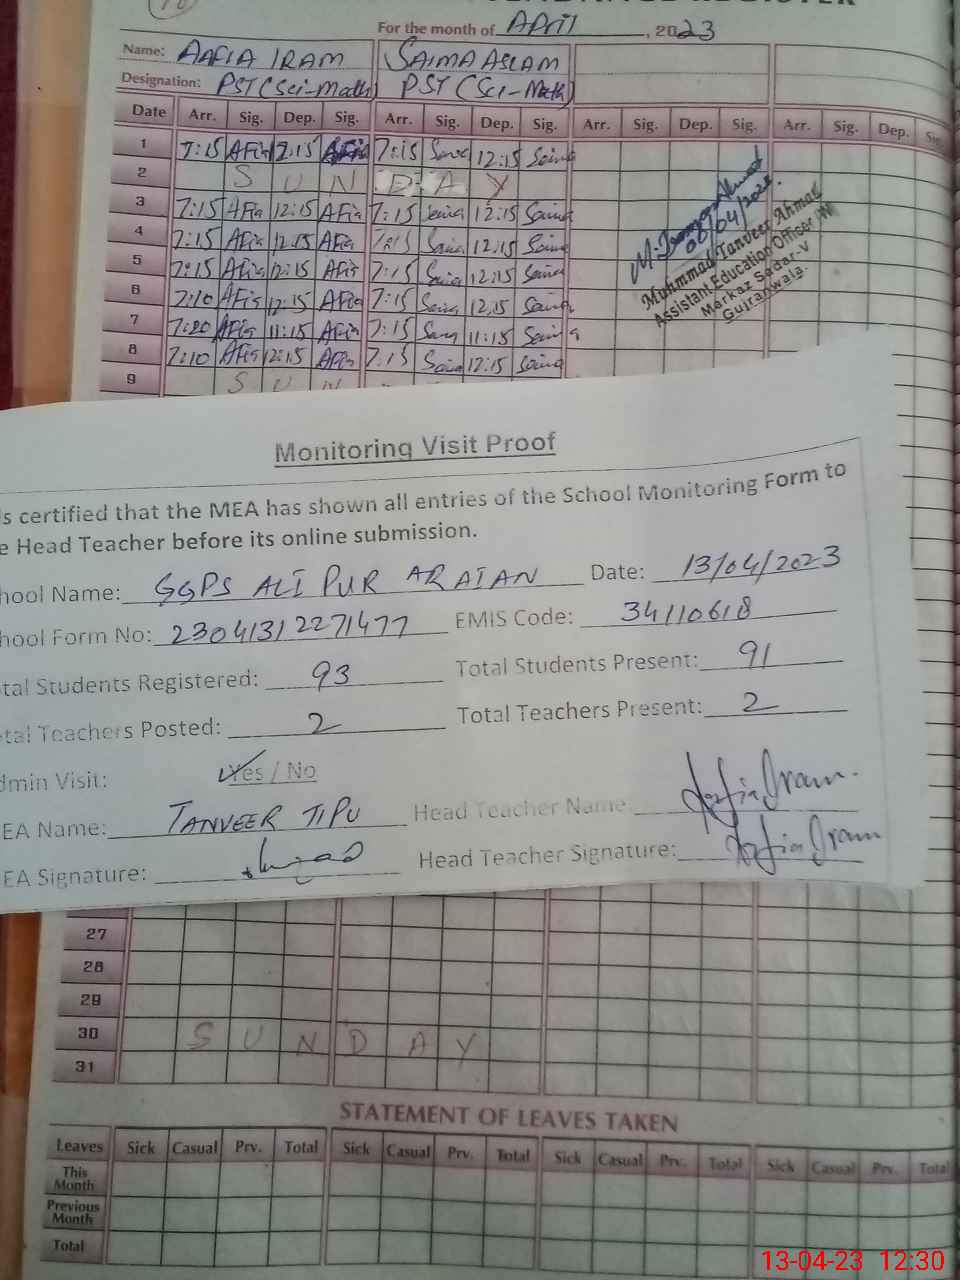 For the month of April, 2023
Name: AAFIA IRAM SAIMA ASLAM
Designation: PST (Sci-Math) PST (Sci-Math)
Date Arr. Sig. Dep. Sig. Arr. Sig. Dep. Sig. Arr. Sig. Dep. Sig. Arr. Sig. Dep.
1 7:15 AFia 12:15 AFia 7:15 12:15
2 S U N D A Y
3 7:15 AFia 12:15 AFia 7:15 12:15
4 7:15 AFia 12:15 AFia 7:15 12:15
5 7:15 AFia 12:15 AFia 7:15 12:15
6 7:10 AFia 12:15 AFia 7:15 12:15
7 7:20 AFia 11:15 AFia 7:15 11:15
8 7:10 AFia 12:15 AFia 7:15 12:15
9 S U N
08/04/2023
Muhmmad Tanveer Ahmad
Assistant Education Officer (W)
Markaz Sadar-V
Gujranwala
Monitoring Visit Proof
s certified that the MEA has shown all entries of the School Monitoring Form to
e Head Teacher before its online submission.
hool Name: GGPS ALI PUR ARAIAN Date: 13/04/2023
hool Form No: 2304131227 1477 EMIS Code: 34110618
tal Students Registered: 93 Total Students Present: 91
tal Teachers Posted: 2 Total Teachers Present: 2
dmin Visit: Yes / No
EA Name: TANVEER TIPU Head Teacher Name: Aafia Iram
EA Signature: Head Teacher Signature: Aafia Iram
27
28
29
30 S U N D A Y
31
STATEMENT OF LEAVES TAKEN
Leaves Sick Casual Prv. Total Sick Casual Prv. Total Sick Casual Prv. Total Sick Casual Prv. Total
This Month
Previous Month
Total
13-04-23 12:30